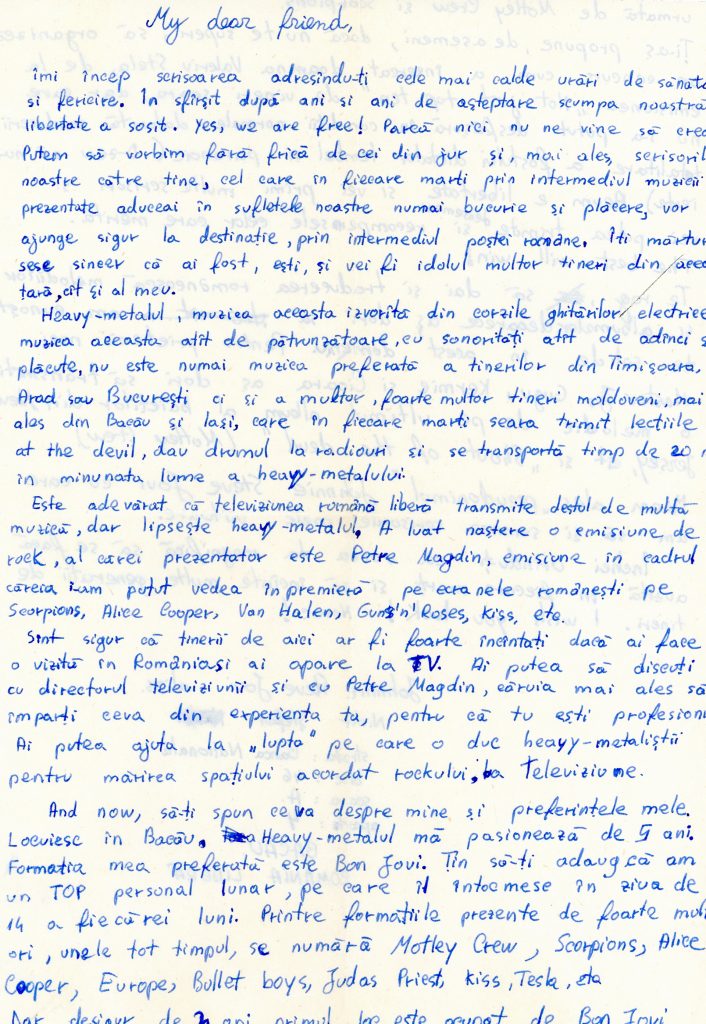 My dear friend,
îmi încep scrisoarea adresîndu-ți cele mai calde urări de sănăta
și fericire. În sfîrșit după ani și ani de așteptare scumpa noastră
libertate a sosit. Yes, we are free! Parcă nici nu ne vine să cred
Putem să vorbim fără frică de cei din jur și, mai ales, scrisoril
noastre către tine, cel care în fiecare marți prin intermediul muzicii
prezentate aduceai în sufletele noastre numai bucurie și plăcere, vor
ajunge sigur la destinație, prin intermediul poștei române. Îți mărtur
sesc sincer că ai fost, ești, și vei fi idolul multor tineri din aceo
țară, cît și al meu.
Heavy-metalul, muzica aceasta izvorîtă din corzile ghitărilor electrice
muzica aceasta atît de pătrunzătoare, cu sonorități atît de adînci ș
plăcute, nu este numai muzica preferată a tinerilor din Timișoara,
Arad sau București ci și a multor, foarte multor tineri moldoveni, mai
ales din Bacău și Iași, care în fiecare marți seara trimit lecțiile
at the devil, dau drumul la radiouri și se transportă timp de 20
în minunata lume a heavy-metalului.
Este adevărat că televiziunea română liberă transmite destul de multă
muzică, dar lipsește heavy-metalul. A luat naștere o emisiune de
rock, al cărei prezentator este Petre Magdin, emisiune în cadrul
căreia i-am putut vedea în premieră pe ecranele românești pe
Scorpions, Alice Cooper, Van Halen, Guns'n'Roses, Kiss, etc.
Sînt sigur că tinerii de aici ar fi foarte încîntați dacă ai face
o vizită în România și ai apare la TV. Ai putea să discuți
cu directorul televiziunii și cu Petre Magdin, căruia mai ales să
împarți ceva din experiența ta, pentru că tu ești profesioni
Ai putea ajuta la „lupta" pe care o duc heavy-metaliștii
pentru mărirea spațiului acordat rockului, la Televiziune.
And now, să-ți spun ceva despre mine și preferințele mele.
Locuiesc în Bacău. Heavy-metalul mă pasionează de 5 ani.
Formația mea preferată este Bon Jovi. Țin să-ți adaug că am
un TOP personal lunar, pe care îl întocmesc în ziua de
14 a fiecărei luni. Printre formațiile prezente de foarte mul
ori, unele tot timpul, se numără Motley Crew, Scorpions, Alice
Cooper, Europe, Bullet boys, Judas Priest, Kiss, Tesla, etc
Dar desigur de 2 ani primul loc este ocupat de Bon Jovi